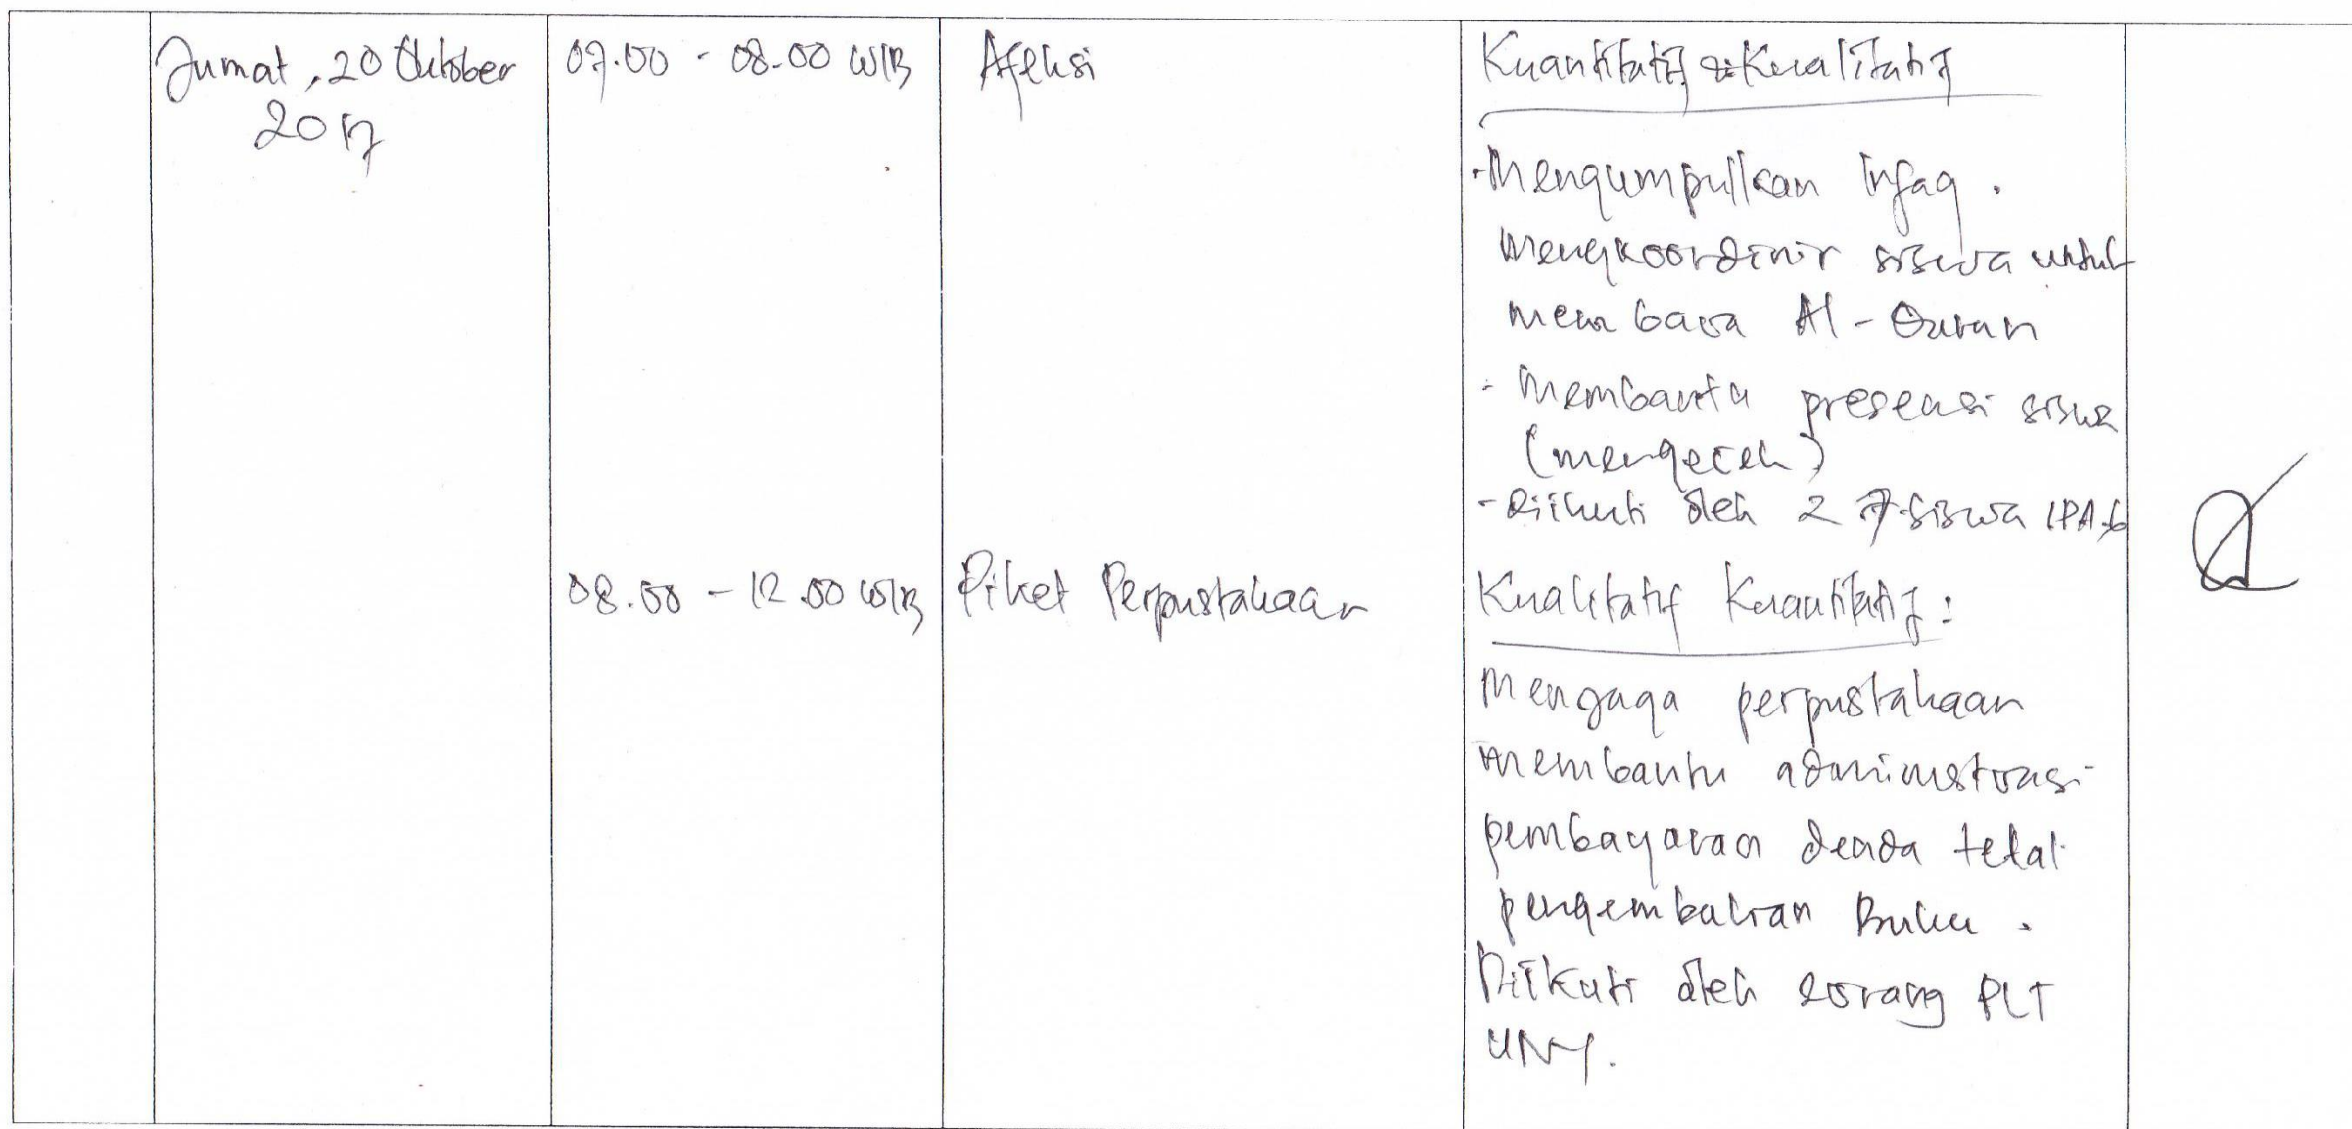 Jumat, 20 Oktober
2017
07.00 - 08.00 WIB
Afeksi
Kuantitatif & Kualitatif
- Mengumpulkan Infaq.
mengkoordinir siswa untuk
membaca Al-Quran
- Membantu presensi siswa
(mengecek)
- Diikuti oleh 27 siswa IPA 6
08.00 - 12.00 WIB
Piket Perpustakaan
Kualitatif Kuantitatif :
Menjaga perpustakaan
membantu administrasi
pembayaran denda telat
pengembalian Buku.
Diikuti oleh 2 orang PLT
UNY.